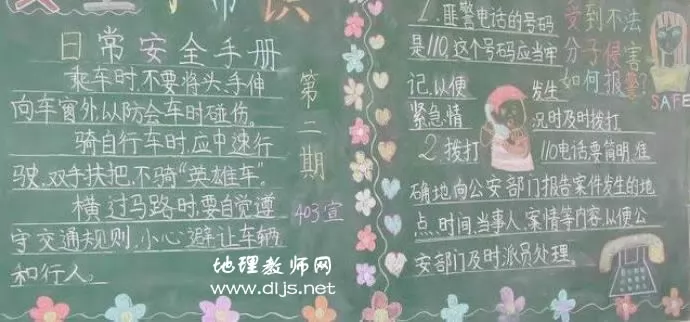 日常安全手册
乘车时,不要将头、手伸
向车窗外以防会车时碰伤。
骑自行车时,应中速行
驶,双手扶把,不骑“英雄车”。
横过马路时,要自觉遵
守交通规则,小心避让车辆
和行人。
第二期
403宣
受到不法
分子侵害
如何报警?
SAFE
1.匪警电话的号码
是110,这个号码应当牢
记,以便 发生
紧急情 况时及时拨打
2.拨打 110电话要简明、准
确地向公安部门报告案件发生的地
点、时间、当事人、案情等内容,以便公
安部门及时派员处理。
地理教师网
www.dljs.net